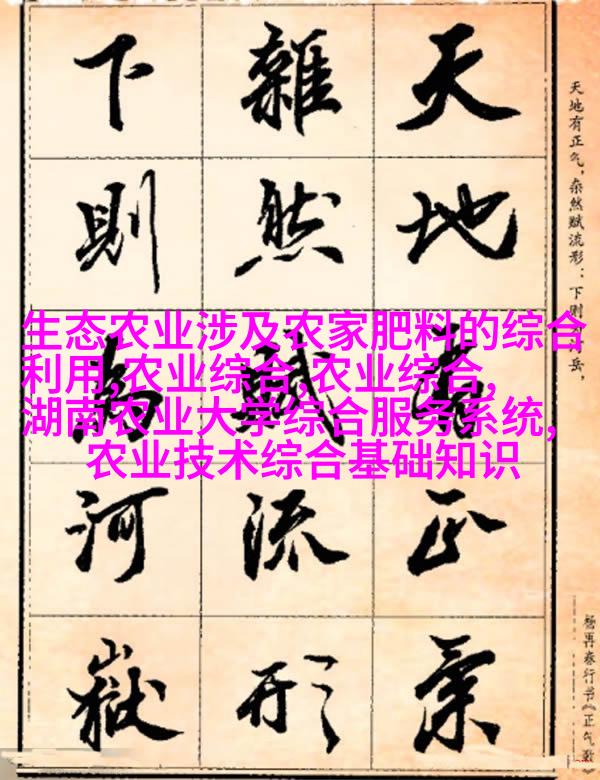 天地有正氣
雜然賦流形
下則為河嶽
天地有正气，杂然赋流形：下则为河岳，
杨再春行书《正气歌》
生态农业涉及农家肥料的综合
利用,农业综合,农业综合,
湖南农业大学综合服务系统,
农业技术综合基础知识